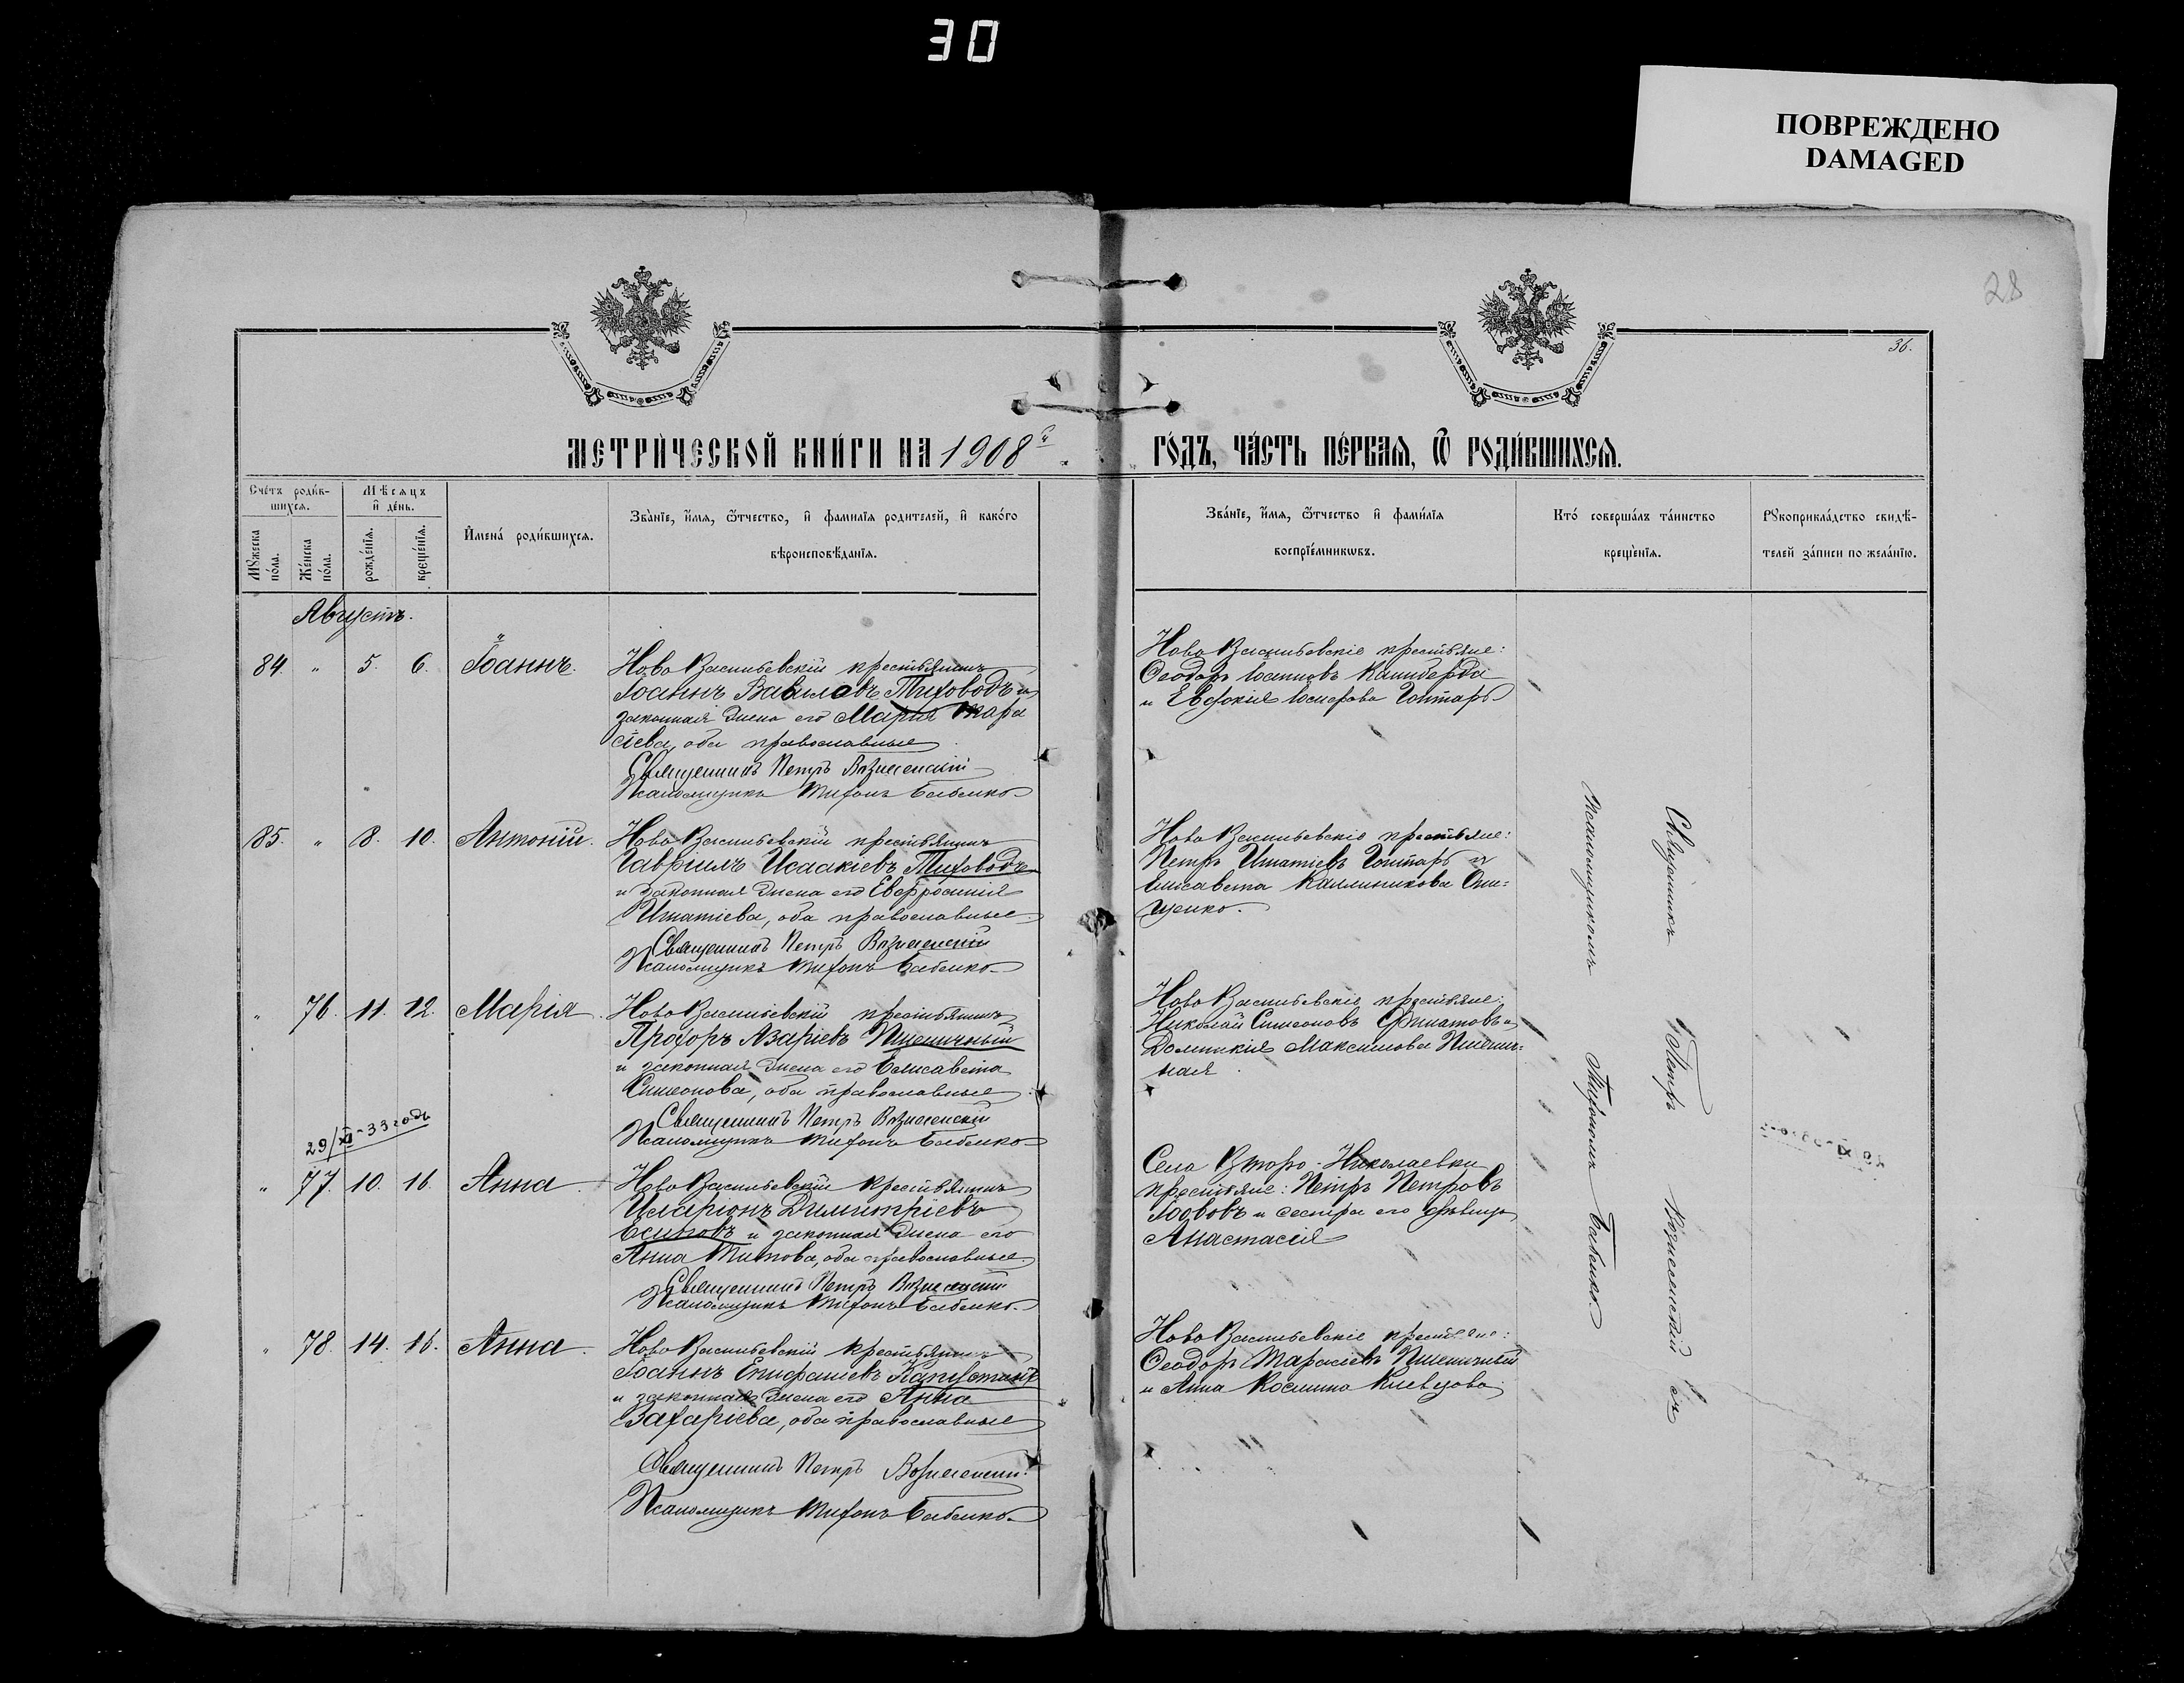 30
ПОВРЕЖДЕНО
DAMAGED
28
36.
МЕТРИ́ЧЕСКОЙ КНИ́ГИ НА 1908й
ГО́ДЪ, ЧА́СТЬ ПЕ́РВАѦ, Ѿ РОДИ́ВШИХСѦ.
Сче́тъ роди́в-
шихсѧ.
Мѣсѧцъ
и҆ де́нь.
Мꙋжеска
по́ла.
Же́нска
по́ла.
рожде́нїѧ.
креще́нїѧ.
И҆мена̀ роди́вшихсѧ.
Зва́нїе, и҆́мѧ, ѻ҆́тчество, и҆ фами́лїѧ роди́телей, и҆ како́гѡ
вѣроисповѣ́данїѧ.
Зва́нїе, и҆́мѧ, ѻ҆́тчество и҆ фами́лїѧ
воспрїе́мникѡвъ.
Кто́ соверша́лъ та́инство
креще́нїѧ.
Рꙋкоприкла́дство свидѣ́-
телей за́писи по жела́нїю.
Августъ.
84. " 5. 6. Іоаннъ.
НовоВасильевскій крестьянинъ
Іоаннъ Вавиловъ Тиховодъ и
законная жена его Марія Тара
сіева, оба православные
Священникъ Петръ Вознесенскій
Псаломщикъ Тихонъ Бабенко
НовоВасильевскіе крестьяне:
Ѳеодоръ Іоанновъ
и Евдокія Іосифова Гонтарь
85. " 8. 10. Антоній.
НовоВасильевскій крестьянинъ
Гавріилъ Исаакіевъ Тиховодъ
и законная жена его Евфросинія
Игнатіева, оба православные.
Священникъ Петръ Вознесенскій
Псаломщикъ Тихонъ Бабенко
НовоВасильевскіе крестьяне:
Петръ Игнатіевъ Гонтарь и
Елисавета Каллиникова Они=
щенко.
" 76. 11. 12. Марія.
НовоВасильевскій крестьянинъ
Прохоръ Азаріевъ Пшеничный
и законная жена его Елисавета
Симеонова, оба православные
Священникъ Петръ Вознесенскій
Псаломщикъ Тихонъ Бабенко
НовоВасильевскіе крестьяне:
Николай Симеоновъ Филатовъ и
Домникія Максимова Пшенич=
ная
29/XI-33 годъ
" 77. 10. 16. Анна.
НовоВасильевскій крестьянинъ
Иларіонъ Димитріевъ
Есиповъ и законная жена его
Анна Титова, оба православные.
Священникъ Петръ Вознесенскій
Псаломщикъ Тихонъ Бабенко.
Села Второ-Николаевки
крестьяне: Петръ Петровъ
и сестра его дѣвица
Анастасія
" 78. 14. 16. Анна.
НовоВасильевскій крестьянинъ
Іоаннъ Епифаніевъ
и законная жена его Анна
Захаріева, оба православные
Священникъ Петръ Вознесенскій
Псаломщикъ Тихонъ Бабенко
НовоВасильевскіе крестьяне:
Ѳеодоръ Тарасіевъ Пшеничный
и Анна Космина Клевцова
Священникъ Петръ Вознесенскій съ
Псаломщикомъ Тихономъ Бабенко.